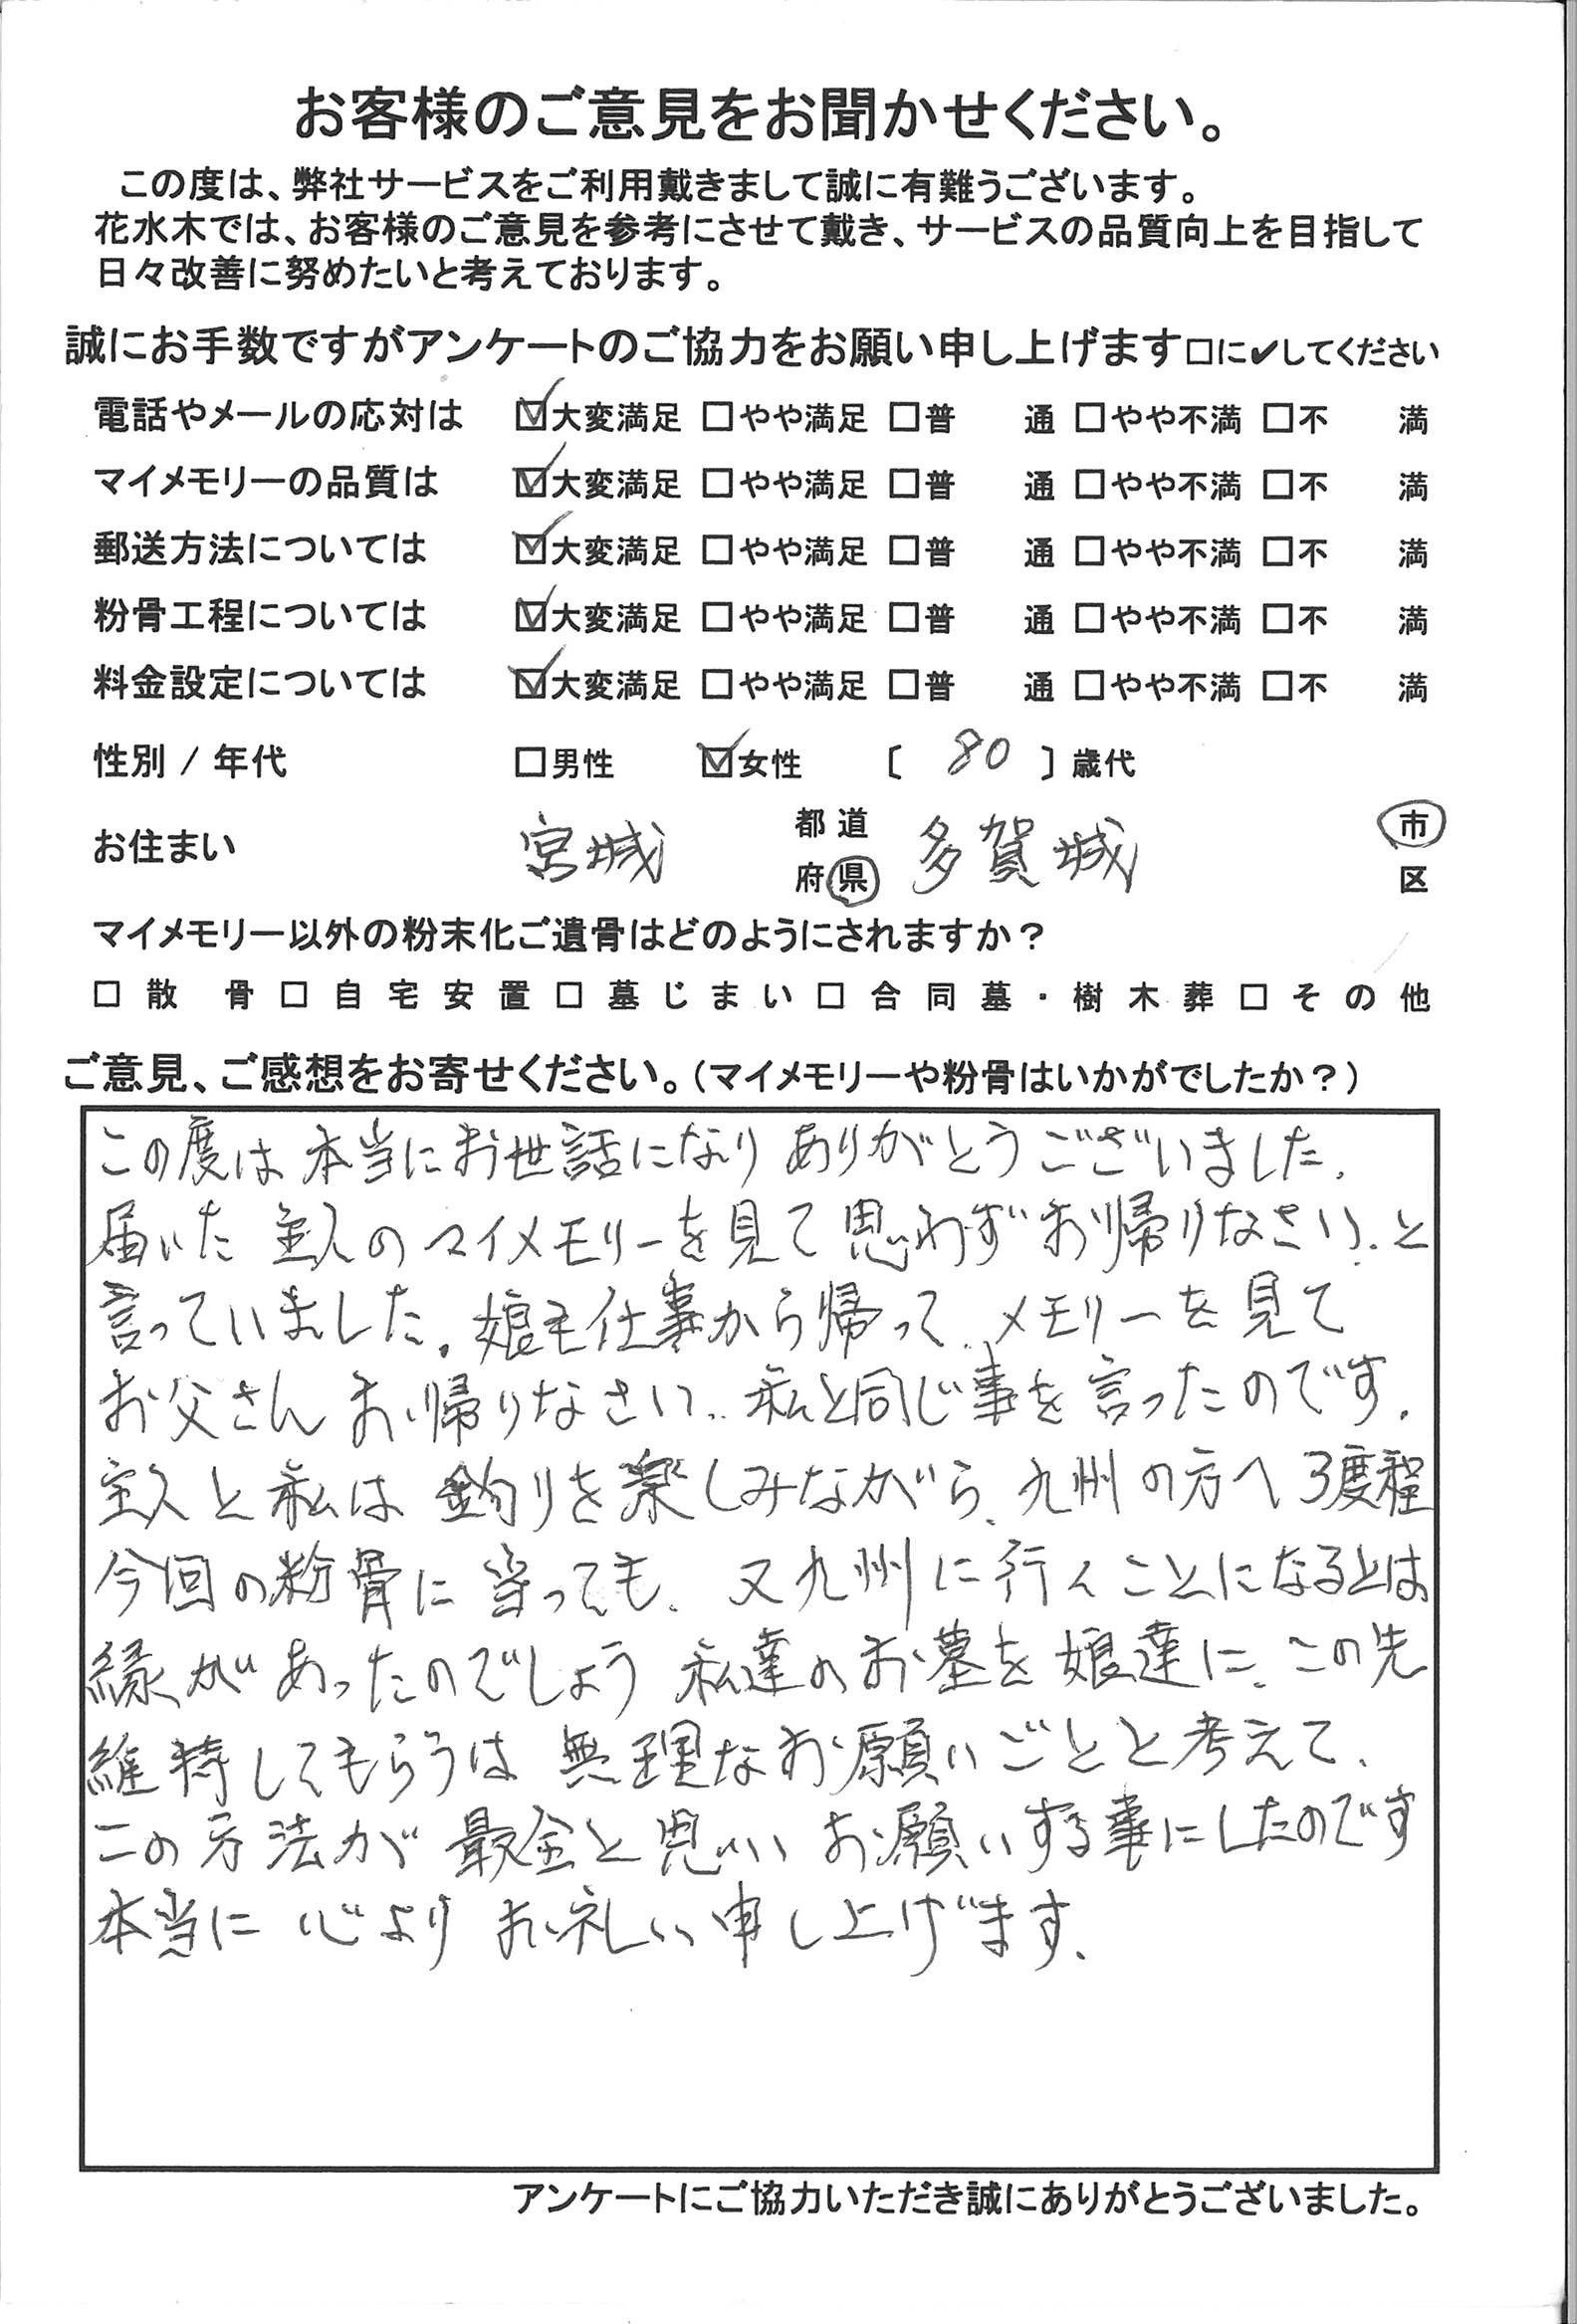 お客様のご意見をお聞かせください。
この度は、弊社サービスをご利用戴きまして誠に有難うございます。
花水木では、お客様のご意見を参考にさせて戴き、サービスの品質向上を目指して
日々改善に努めたいと考えております。
誠にお手数ですがアンケートのご協力をお願い申し上げます□に✔してください
電話やメールの応対は ☑大変満足 □やや満足 □普 通 □やや不満 □不 満
マイメモリーの品質は ☑大変満足 □やや満足 □普 通 □やや不満 □不 満
郵送方法については ☑大変満足 □やや満足 □普 通 □やや不満 □不 満
粉骨工程については ☑大変満足 □やや満足 □普 通 □やや不満 □不 満
料金設定については ☑大変満足 □やや満足 □普 通 □やや不満 □不 満
性別 / 年代 □男性 ☑女性 〔 80 〕歳代
お住まい 宮城 都道府県 多賀城 市区
マイメモリー以外の粉末化ご遺骨はどのようにされますか？
□散 骨□自宅安置□墓じまい□合同墓・樹木葬□その他
ご意見、ご感想をお寄せください。（マイメモリーや粉骨はいかがでしたか？）
この度は本当にお世話になりありがとうございました。
届いた主人のマイメモリーを見て思わずお帰りなさい、と
言っていました。娘も仕事から帰って、メモリーを見て
お父さんお帰りなさい、私と同じ事を言ったのです。
主人と私は釣りを楽しみながら、九州の方へ3度程
今回の粉骨に当っても、又九州に行くことになるとは、
縁があったのでしょう 私達のお墓を娘達に、この先
維持してもらうは無理なお願いごとと考えて、
この方法が最金と思いお願いする事にしたのです
本当に心よりお礼い申し上げます。
アンケートにご協力いただき誠にありがとうございました。